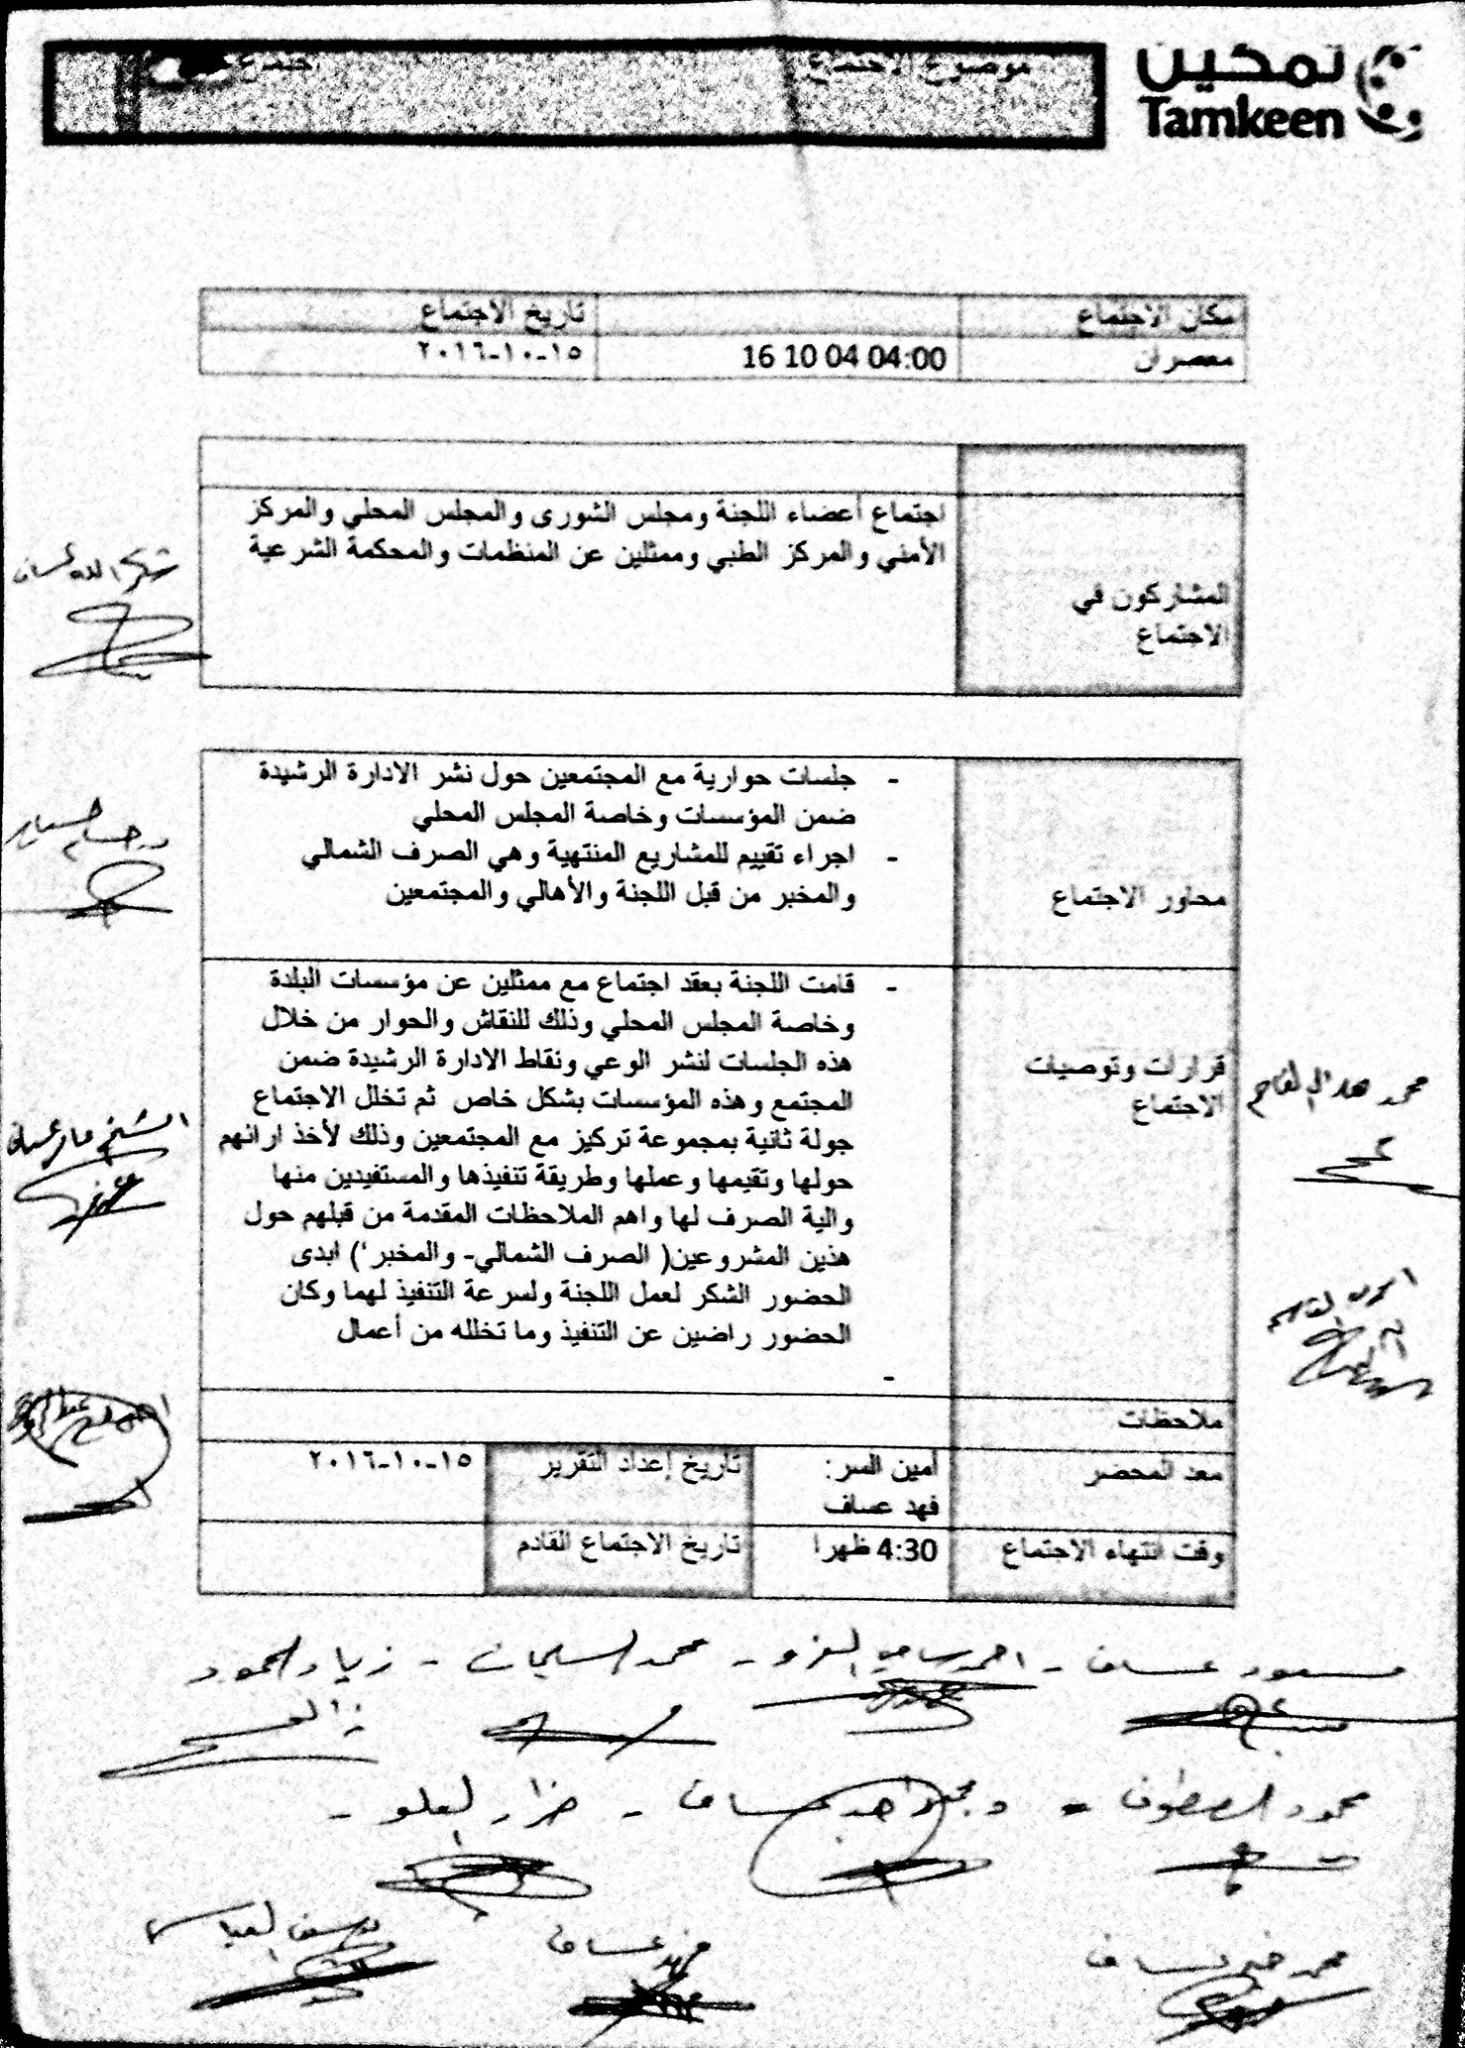 تمكين
Tamkeen
موضوع الاجتماع
مكان الاجتماع
تاريخ الاجتماع
معصران
16 10 04 04:00
١٥-١٠-٢٠١٦
المشاركون في
الاجتماع
اجتماع أعضاء اللجنة ومجلس الشورى والمجلس المحلي والمركز
الأمني والمركز الطبي وممثلين عن المنظمات والمحكمة الشرعية
محاور الاجتماع
- جلسات حوارية مع المجتمعين حول نشر الادارة الرشيدة
ضمن المؤسسات وخاصة المجلس المحلي
- اجراء تقييم للمشاريع المنتهية وهي الصرف الشمالي
والمخبر من قبل اللجنة والأهالي والمجتمعين
قرارات وتوصيات
الاجتماع
- قامت اللجنة بعقد اجتماع مع ممثلين عن مؤسسات البلدة
وخاصة المجلس المحلي وذلك للنقاش والحوار من خلال
هذه الجلسات لنشر الوعي ونقاط الادارة الرشيدة ضمن
المجتمع وهذه المؤسسات بشكل خاص ثم تخلل الاجتماع
جولة ثانية بمجموعة تركيز مع المجتمعين وذلك لأخذ ارائهم
حولها وتقيمها وعملها وطريقة تنفيذها والمستفيدين منها
والية الصرف لها واهم الملاحظات المقدمة من قبلهم حول
هذين المشروعين( الصرف الشمالي- والمخبر') ابدى
الحضور الشكر لعمل اللجنة ولسرعة التنفيذ لهما وكان
الحضور راضين عن التنفيذ وما تخلله من أعمال
-
ملاحظات
معد المحضر
أمين السر:
فهد عساف
تاريخ إعداد التقرير
١٥-١٠-٢٠١٦
وقت انتهاء الاجتماع
4:30 ظهرا
تاريخ الاجتماع القادم
مسعود عساف - احمد سامي العزو - محمد السليمان - زياد المحمود
محمود - عساف - ضرار العلو -
محمد عساف
فهد عساف
يوسف العباس